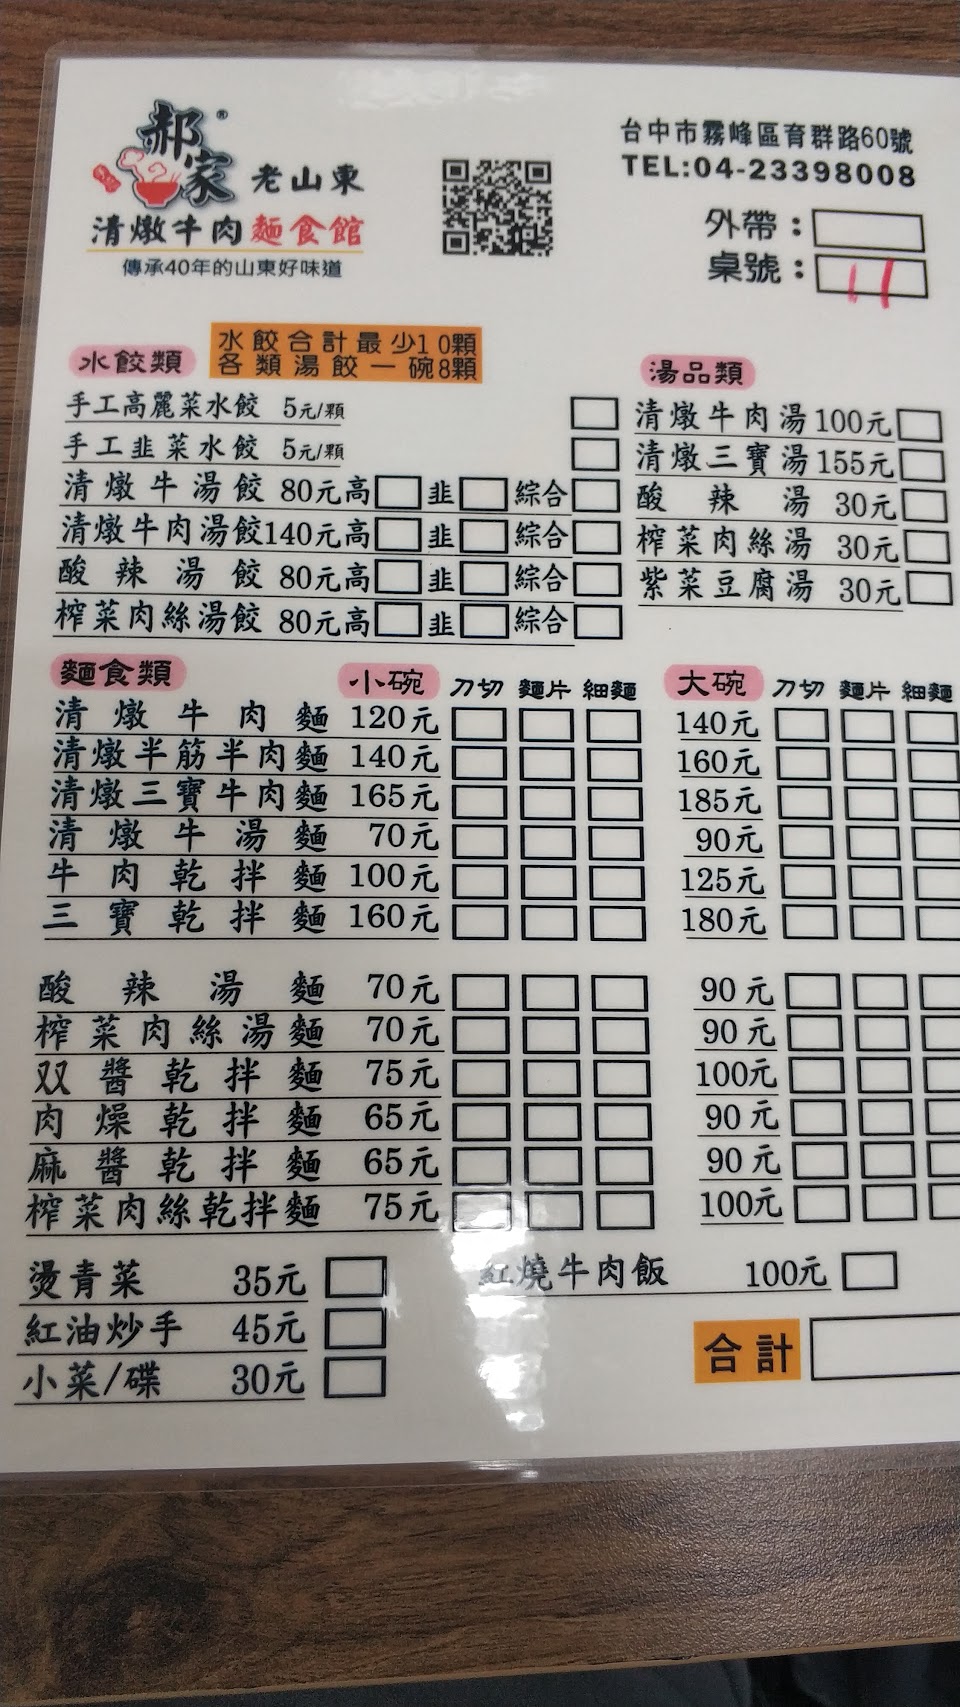 郝家®
老山東
清燉牛肉麵食館
傳承40年的山東好味道
台中市霧峰區育群路60號
TEL:04-23398008
外帶：
桌號：11
水餃類
水餃合計最少10顆
各類湯餃一碗8顆
手工高麗菜水餃 5元/顆
手工韭菜水餃 5元/顆
清燉牛湯餃 80元 高 韭 綜合
清燉牛肉湯餃 140元 高 韭 綜合
酸辣湯餃 80元 高 韭 綜合
榨菜肉絲湯餃 80元 高 韭 綜合
湯品類
清燉牛肉湯 100元
清燉三寶湯 155元
酸辣湯 30元
榨菜肉絲湯 30元
紫菜豆腐湯 30元
麵食類 小碗 刀切 麵片 細麵 大碗 刀切 麵片 細麵
清燉牛肉麵 120元 140元
清燉半筋半肉麵 140元 160元
清燉三寶牛肉麵 165元 185元
清燉牛湯麵 70元 90元
牛肉乾拌麵 100元 125元
三寶乾拌麵 160元 180元
酸辣湯麵 70元 90元
榨菜肉絲湯麵 70元 90元
双醬乾拌麵 75元 100元
肉燥乾拌麵 65元 90元
麻醬乾拌麵 65元 90元
榨菜肉絲乾拌麵 75元 100元
燙青菜 35元
紅油炒手 45元
小菜/碟 30元
紅燒牛肉飯 100元
合計